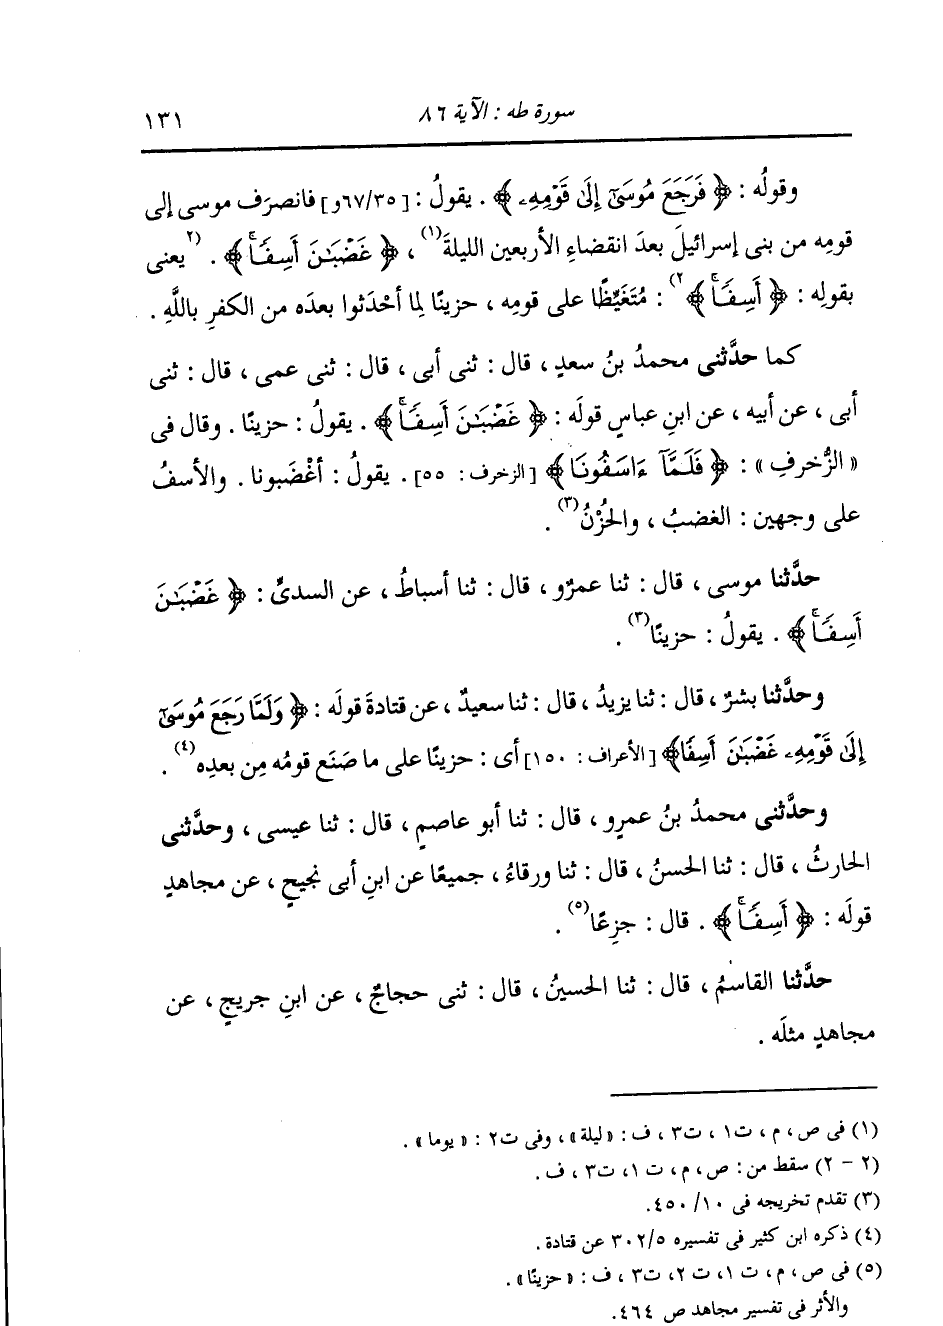 سورة طه : الآية ٨٦
١٣١
وقولُه : ﴿ فَرَجَعَ مُوسَىٰٓ إِلَىٰ قَوْمِهِۦ ﴾ . يقولُ : [٦٧/٣٥و] فانصرَف موسى إلى
قومِه من بنى إسرائيلَ بعدَ انقضاءِ الأربعين الليلةَ(١) ، ﴿ غَضْبَٰنَ أَسِفًاۚ ﴾ . (٢ يعنى
بقولِه : ﴿ أَسِفًاۚ ﴾ ٢) : مُتَغَيِّظًا على قومِه ، حزينًا لِما أحْدَثوا بعدَه من الكفرِ باللَّهِ .
كما حدَّثنى محمدُ بنُ سعدٍ ، قال : ثنى أبى ، قال : ثنى عمى ، قال : ثنى
أبى ، عن أبيه ، عن ابنِ عباسٍ قولَه : ﴿ غَضْبَٰنَ أَسِفًاۚ ﴾ . يقولُ : حزينًا . وقال فى
« الزُّخرفِ » : ﴿ فَلَمَّآ ءَاسَفُونَا ﴾ [الزخرف : ٥٥] . يقولُ : أغْضَبونا . والأسفُ
على وجهين : الغضبُ ، والحُزْنُ(٣) .
حدَّثنا موسى ، قال : ثنا عمرٌو ، قال : ثنا أسباطُ ، عن السدىِّ : ﴿ غَضْبَٰنَ
أَسِفًاۚ ﴾ . يقولُ : حزينًا(٣) .
وحدَّثنا بشرٌ ، قال : ثنا يزيدُ ، قال : ثنا سعيدٌ ، عن قتادةَ قولَه : ﴿ وَلَمَّا رَجَعَ مُوسَىٰٓ
إِلَىٰ قَوْمِهِۦ غَضْبَٰنَ أَسِفًا ﴾ [الأعراف : ١٥٠] أى : حزينًا على ما صَنَع قومُه مِن بعدِه(٤) .
وحدَّثنى محمدُ بنُ عمرٍو ، قال : ثنا أبو عاصمٍ ، قال : ثنا عيسى ، وحدَّثنى
الحارثُ ، قال : ثنا الحسنُ ، قال : ثنا ورقاءُ ، جميعًا عن ابنِ أبى نجيحٍ ، عن مجاهدٍ
قولَه : ﴿ أَسِفًاۚ ﴾ . قال : جزِعًا(٥) .
حدَّثنا القاسمُ ، قال : ثنا الحسينُ ، قال : ثنى حجاجٌ ، عن ابنِ جريجٍ ، عن
مجاهدٍ مثلَه .
(١) فى ص ، م ، ت١ ، ت٣ ، ف : « ليلة » ، وفى ت٢ : « يوما » .
(٢ - ٢) سقط من : ص ، م ، ت ١، ت٣ ، ف .
(٣) تقدم تخريجه فى ١٠/ ٤٥٠.
(٤) ذكره ابن كثير فى تفسيره ٣٠٢/٥ عن قتادة .
(٥) فى ص ، م ، ت ١، ت ٢، ت٣ ، ف : « حزينًا » .
والأثر فى تفسير مجاهد ص ٤٦٤.